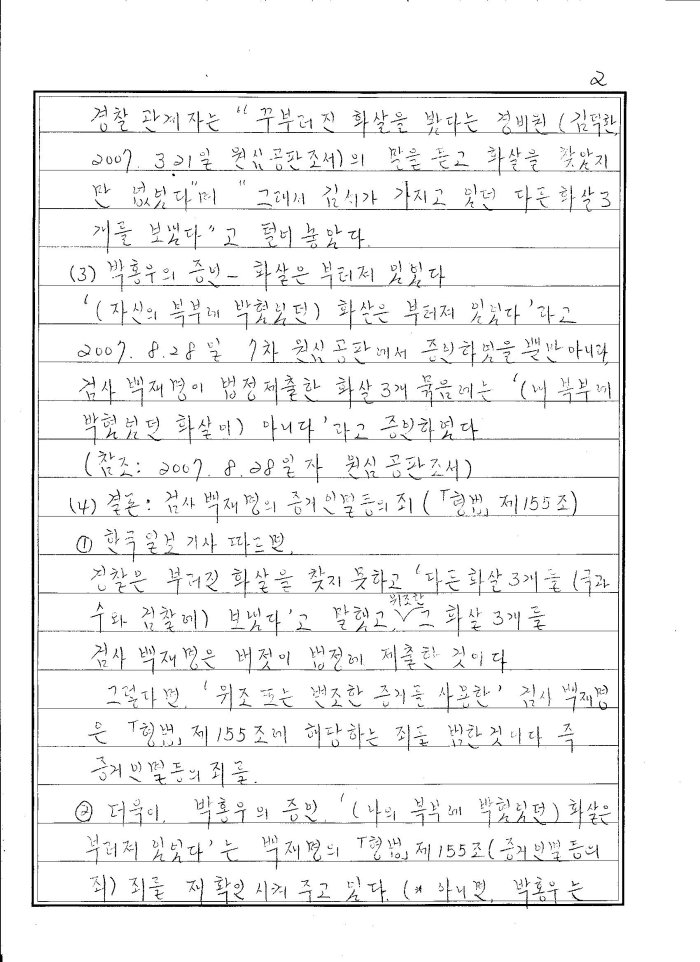 2
경찰 관계자는 "꾸부러진 화살을 봤다는 경비원 (김덕환,
2007. 3.21일 원심공판조서)의 말을 듣고 화살을 찾았지
만 없었다"며 "그래서 김씨가 가지고 있던 다른 화살3
개를 보냈다"고 털어 놓았다.
(3) 박홍우의 증언 - 화살은 부러져 있었다
'(자신의 복부에 박혔었던) 화살은 부러져 있었다'라고
2007. 8.28일 7차 원심공판에서 증언하였을 뿐만 아니라,
검사 백재명이 법정제출한 화살3개 묶음에는 '(내 복부에
박혔었던 화살이) 아니다'라고 증언하였다
(참조: 2007. 8.28일자 원심공판조서)
(4) 결론: 검사 백재명의 증거인멸등의 죄 (「형법」 제155조)
① 한국일보 기사 따르면,
경찰은 부러진 화살을 찾지 못하고 '다른 화살3개를 (국과
수와 검찰에) 보냈다'고 말했고, 위조한 그 화살 3개를
검사 백재명은 버젓이 법정에 제출한 것이다
그렇다면, '위조 또는 변조한 증거를 사용한' 검사 백재명
은 「형법」 제155조에 해당하는 죄를 범한것이다 즉
증거인멸등의 죄를.
② 더욱이, 박홍우의 증언, '(나의 복부에 박혔었던) 화살은
부러져 있었다'는 백재명의 「형법」 제155조(증거인멸등의
죄) 죄를 재확인 시켜 주고 있다. (* 아니면, 박홍우는